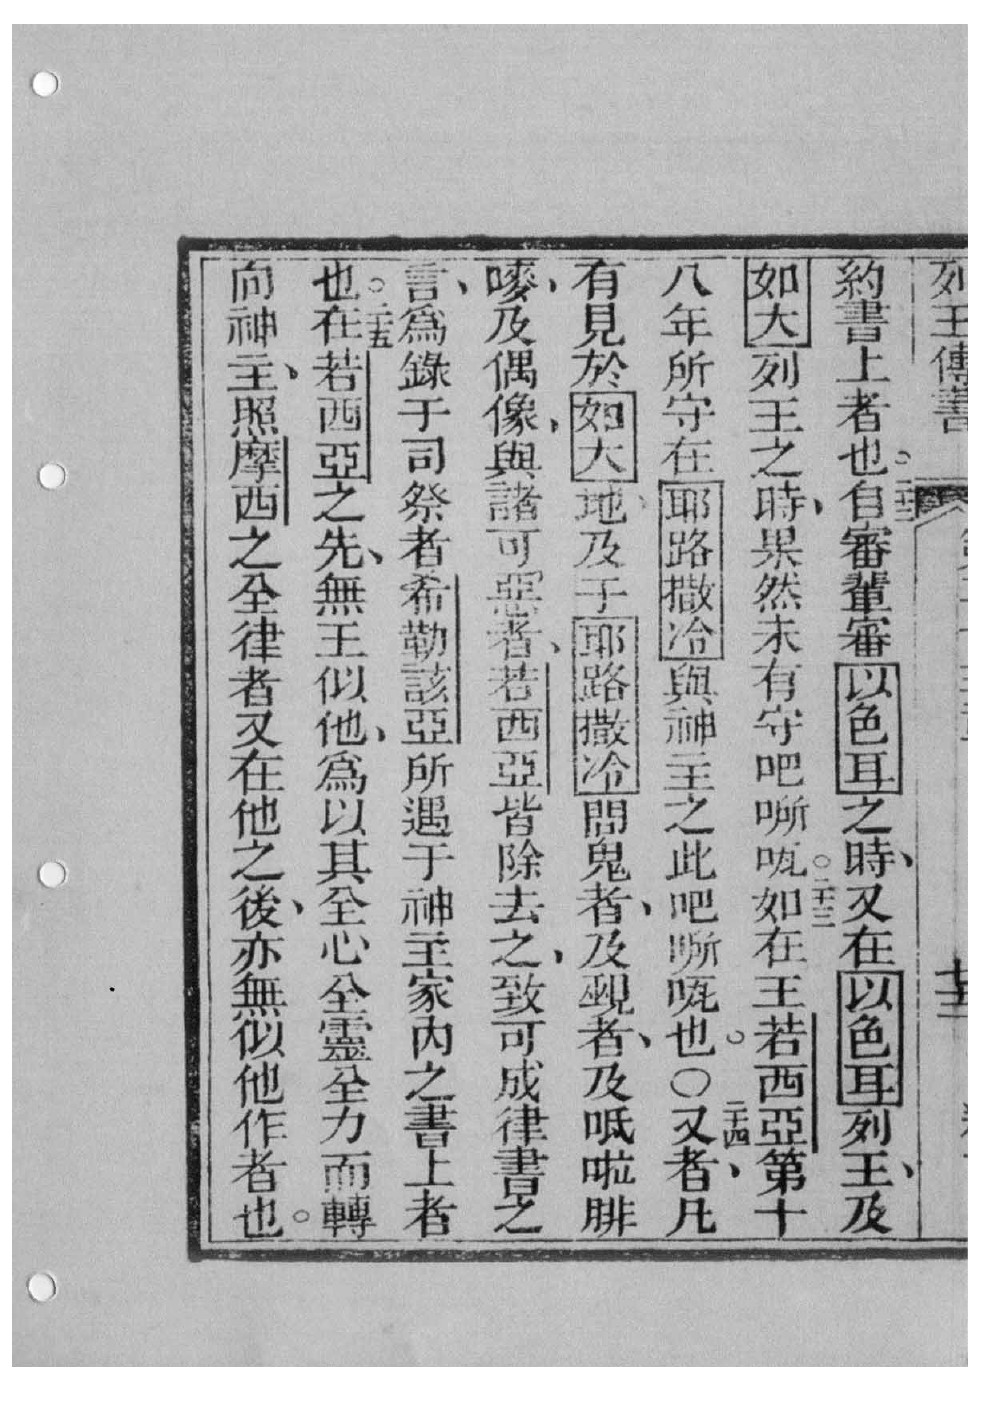 列王傳書
約書上者也。二十二自審輩審以色耳之時、又在以色耳列王、及
如大列王之時、果然未有守吧嘶呒。二十三如在王若西亞第十
八年所守在耶路撒冷與神主之此吧嘶呒也。〇二十四又者、凡
有見於如大地、及于耶路撒冷問鬼者、及覡者、及呧啦腓
嘜、及偶像、與諸可惡者、若西亞皆除去之、致可成律書之
言、為錄于司祭者希勒該亞所遇于神主家內之書上者
也。二十五在若西亞之先、無王似他、為以其全心全靈全力而轉
向神主、照摩西之全律者又在他之後、亦無似他作者也。